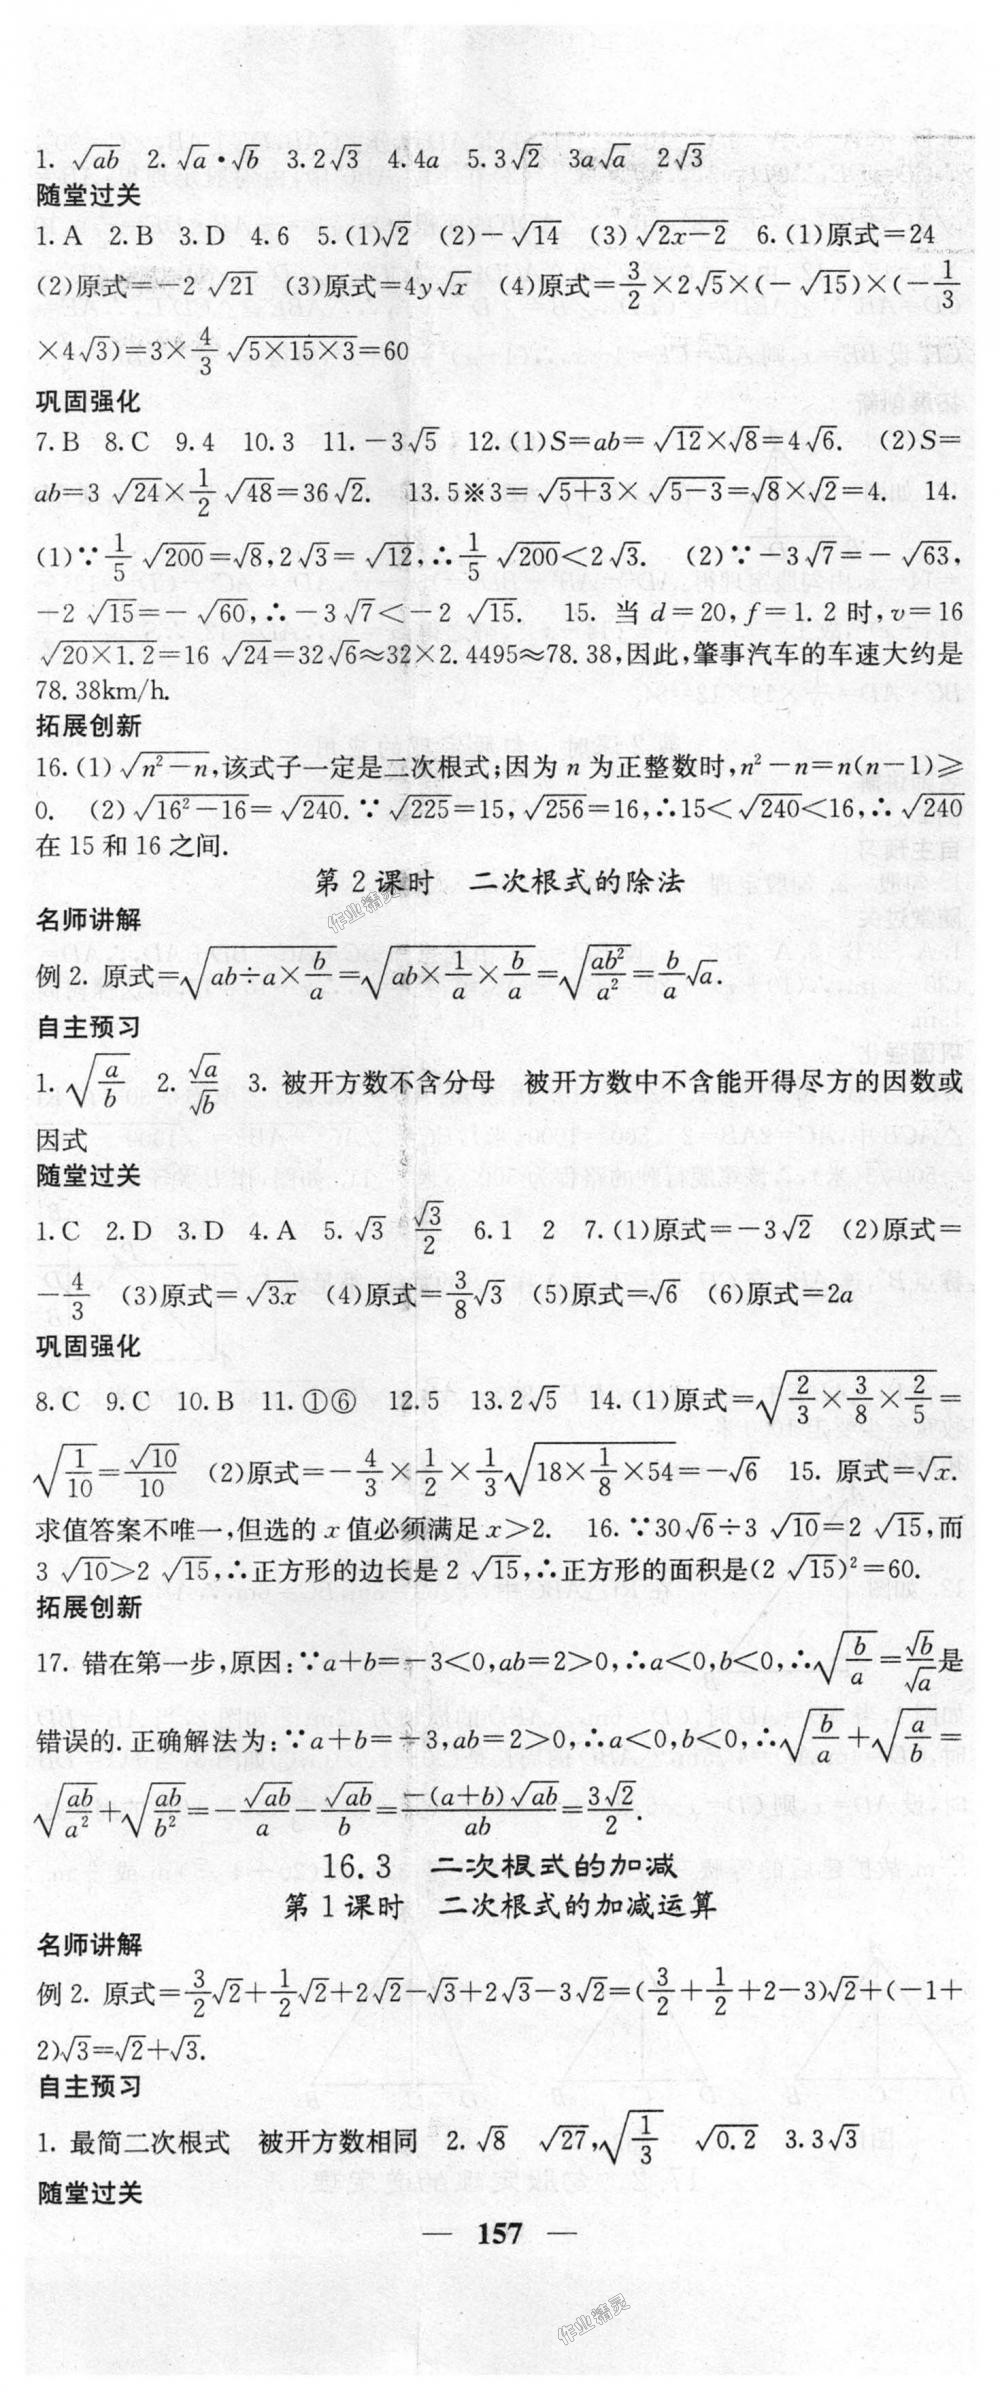 1. √ab  2. √a·√b  3.2√3  4.4a  5.3√2  3a√a  2√3
随堂过关
1.A  2.B  3.D  4.6  5.(1)√2  (2)−√14  (3)√(2x−2)  6.(1)原式=24
(2)原式=−2√21  (3)原式=4y√x  (4)原式=3/2×2√5×(−√15)×(−1/3
×4√3)=3×4/3√(5×15×3)=60
巩固强化
7.B  8.C  9.4  10.3  11.−3√5  12.(1)S=ab=√12×√8=4√6.  (2)S=
ab=3√24×1/2√48=36√2.  13.5※3=√(5+3)×√(5−3)=√8×√2=4.  14.
(1)∵1/5√200=√8,2√3=√12,∴1/5√200<2√3.  (2)∵−3√7=−√63,
−2√15=−√60,∴−3√7<−2√15.  15. 当 d=20,f=1.2 时,v=16
√(20×1.2)=16√24=32√6≈32×2.4495≈78.38,因此,肇事汽车的车速大约是
78.38km/h.
拓展创新
16.(1)√(n²−n),该式子一定是二次根式;因为 n 为正整数时,n²−n=n(n−1)≥
0.  (2)√(16²−16)=√240.∵√225=15,√256=16,∴15<√240<16,∴√240
在 15 和 16 之间.
第 2 课时  二次根式的除法
名师讲解
例 2. 原式=√(ab÷a×b/a)=√(ab×1/a×b/a)=√(ab²/a²)=b/a√a.
自主预习
1. √(a/b)  2. √a/√b  3. 被开方数不含分母  被开方数中不含能开得尽方的因数或
因式
随堂过关
1.C  2.D  3.D  4.A  5.√3  √3/2  6.1  2  7.(1)原式=−3√2  (2)原式=
−4/3  (3)原式=√3x  (4)原式=3/8√3  (5)原式=√6  (6)原式=2a
巩固强化
8.C  9.C  10.B  11.①⑥  12.5  13.2√5  14.(1)原式=√(2/3×3/8×2/5)=
√(1/10)=√10/10  (2)原式=−4/3×1/2×1/3√(18×1/8×54)=−√6  15. 原式=√x.
求值答案不唯一,但选的 x 值必须满足 x>2.  16.∵30√6÷3√10=2√15,而
3√10>2√15,∴正方形的边长是 2√15,∴正方形的面积是(2√15)²=60.
拓展创新
17. 错在第一步,原因:∵a+b=−3<0,ab=2>0,∴a<0,b<0,∴√(b/a)=√b/√a是
错误的.正确解法为:∵a+b=−3,ab=2>0,∴a<0,b<0,∴√(b/a)+√(a/b)=
√(ab/a²)+√(ab/b²)=−√ab/a−√ab/b=−(a+b)√ab/ab=3√2/2.
16.3  二次根式的加减
第 1 课时  二次根式的加减运算
名师讲解
例 2. 原式=3/2√2+1/2√2+2√2−√3+2√3−3√2=(3/2+1/2+2−3)√2+(−1+
2)√3=√2+√3.
自主预习
1. 最简二次根式  被开方数相同  2.√8  √27,√(1/3)  √0.2  3.3√3
随堂过关
— 157 —
作业精灵
作业精灵